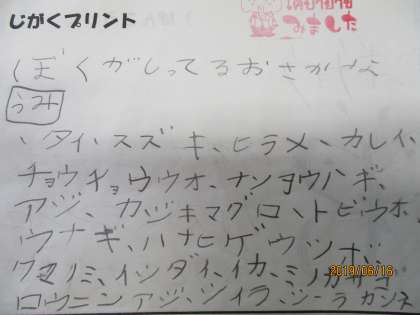 じがくプリント
みました
ぼくがしってるおさかな
うみ
、タイ、スズキ、ヒラメ、カレイ、
チョウチョウウオ、ナンヨウハギ、
アジ、カジキマグロ、トビウオ、
ウナギ、ハナヒゲウツボ、
クマノミ、イシダイ、イカ、ミノカサゴ
ロウニンアジ、シイラ、シーラカンス
2019/06/16